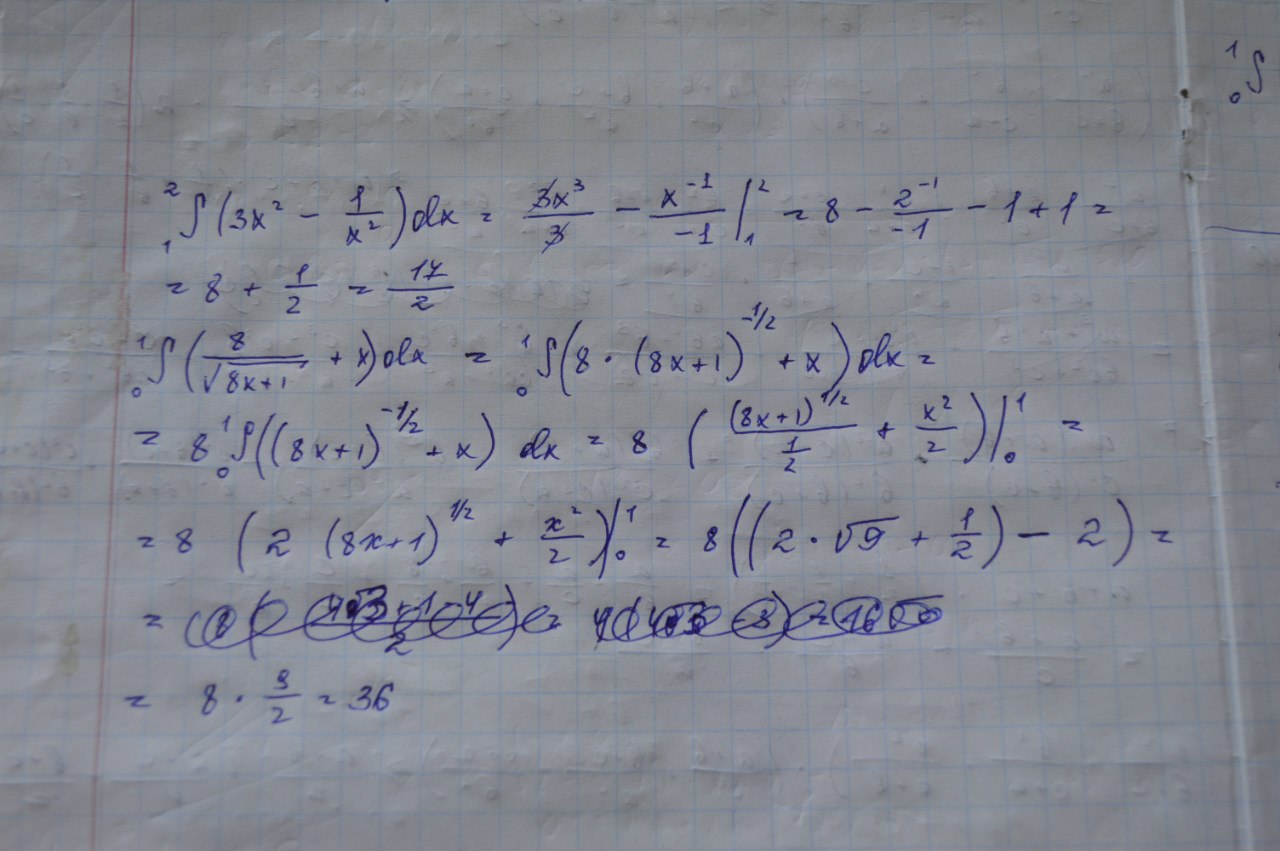 ²₁∫(3x² - 1/x²)dx = 3x³/3 - x⁻¹/-1 |²₁ = 8 - 2⁻¹/-1 - 1 + 1 =
= 8 + 1/2 = 17/2
¹₀∫(8/√(8x+1) + x)dx = ¹₀∫(8 · (8x+1)^(-1/2) + x)dx =
= 8 ¹₀∫((8x+1)^(-1/2) + x) dx = 8 ((8x+1)^(1/2)/(1/2) + x²/2)|¹₀ =
= 8 (2 (8x+1)^(1/2) + x²/2)|¹₀ = 8((2·√9 + 1/2) - 2) =
=
= 8 · 9/2 = 36
¹₀∫